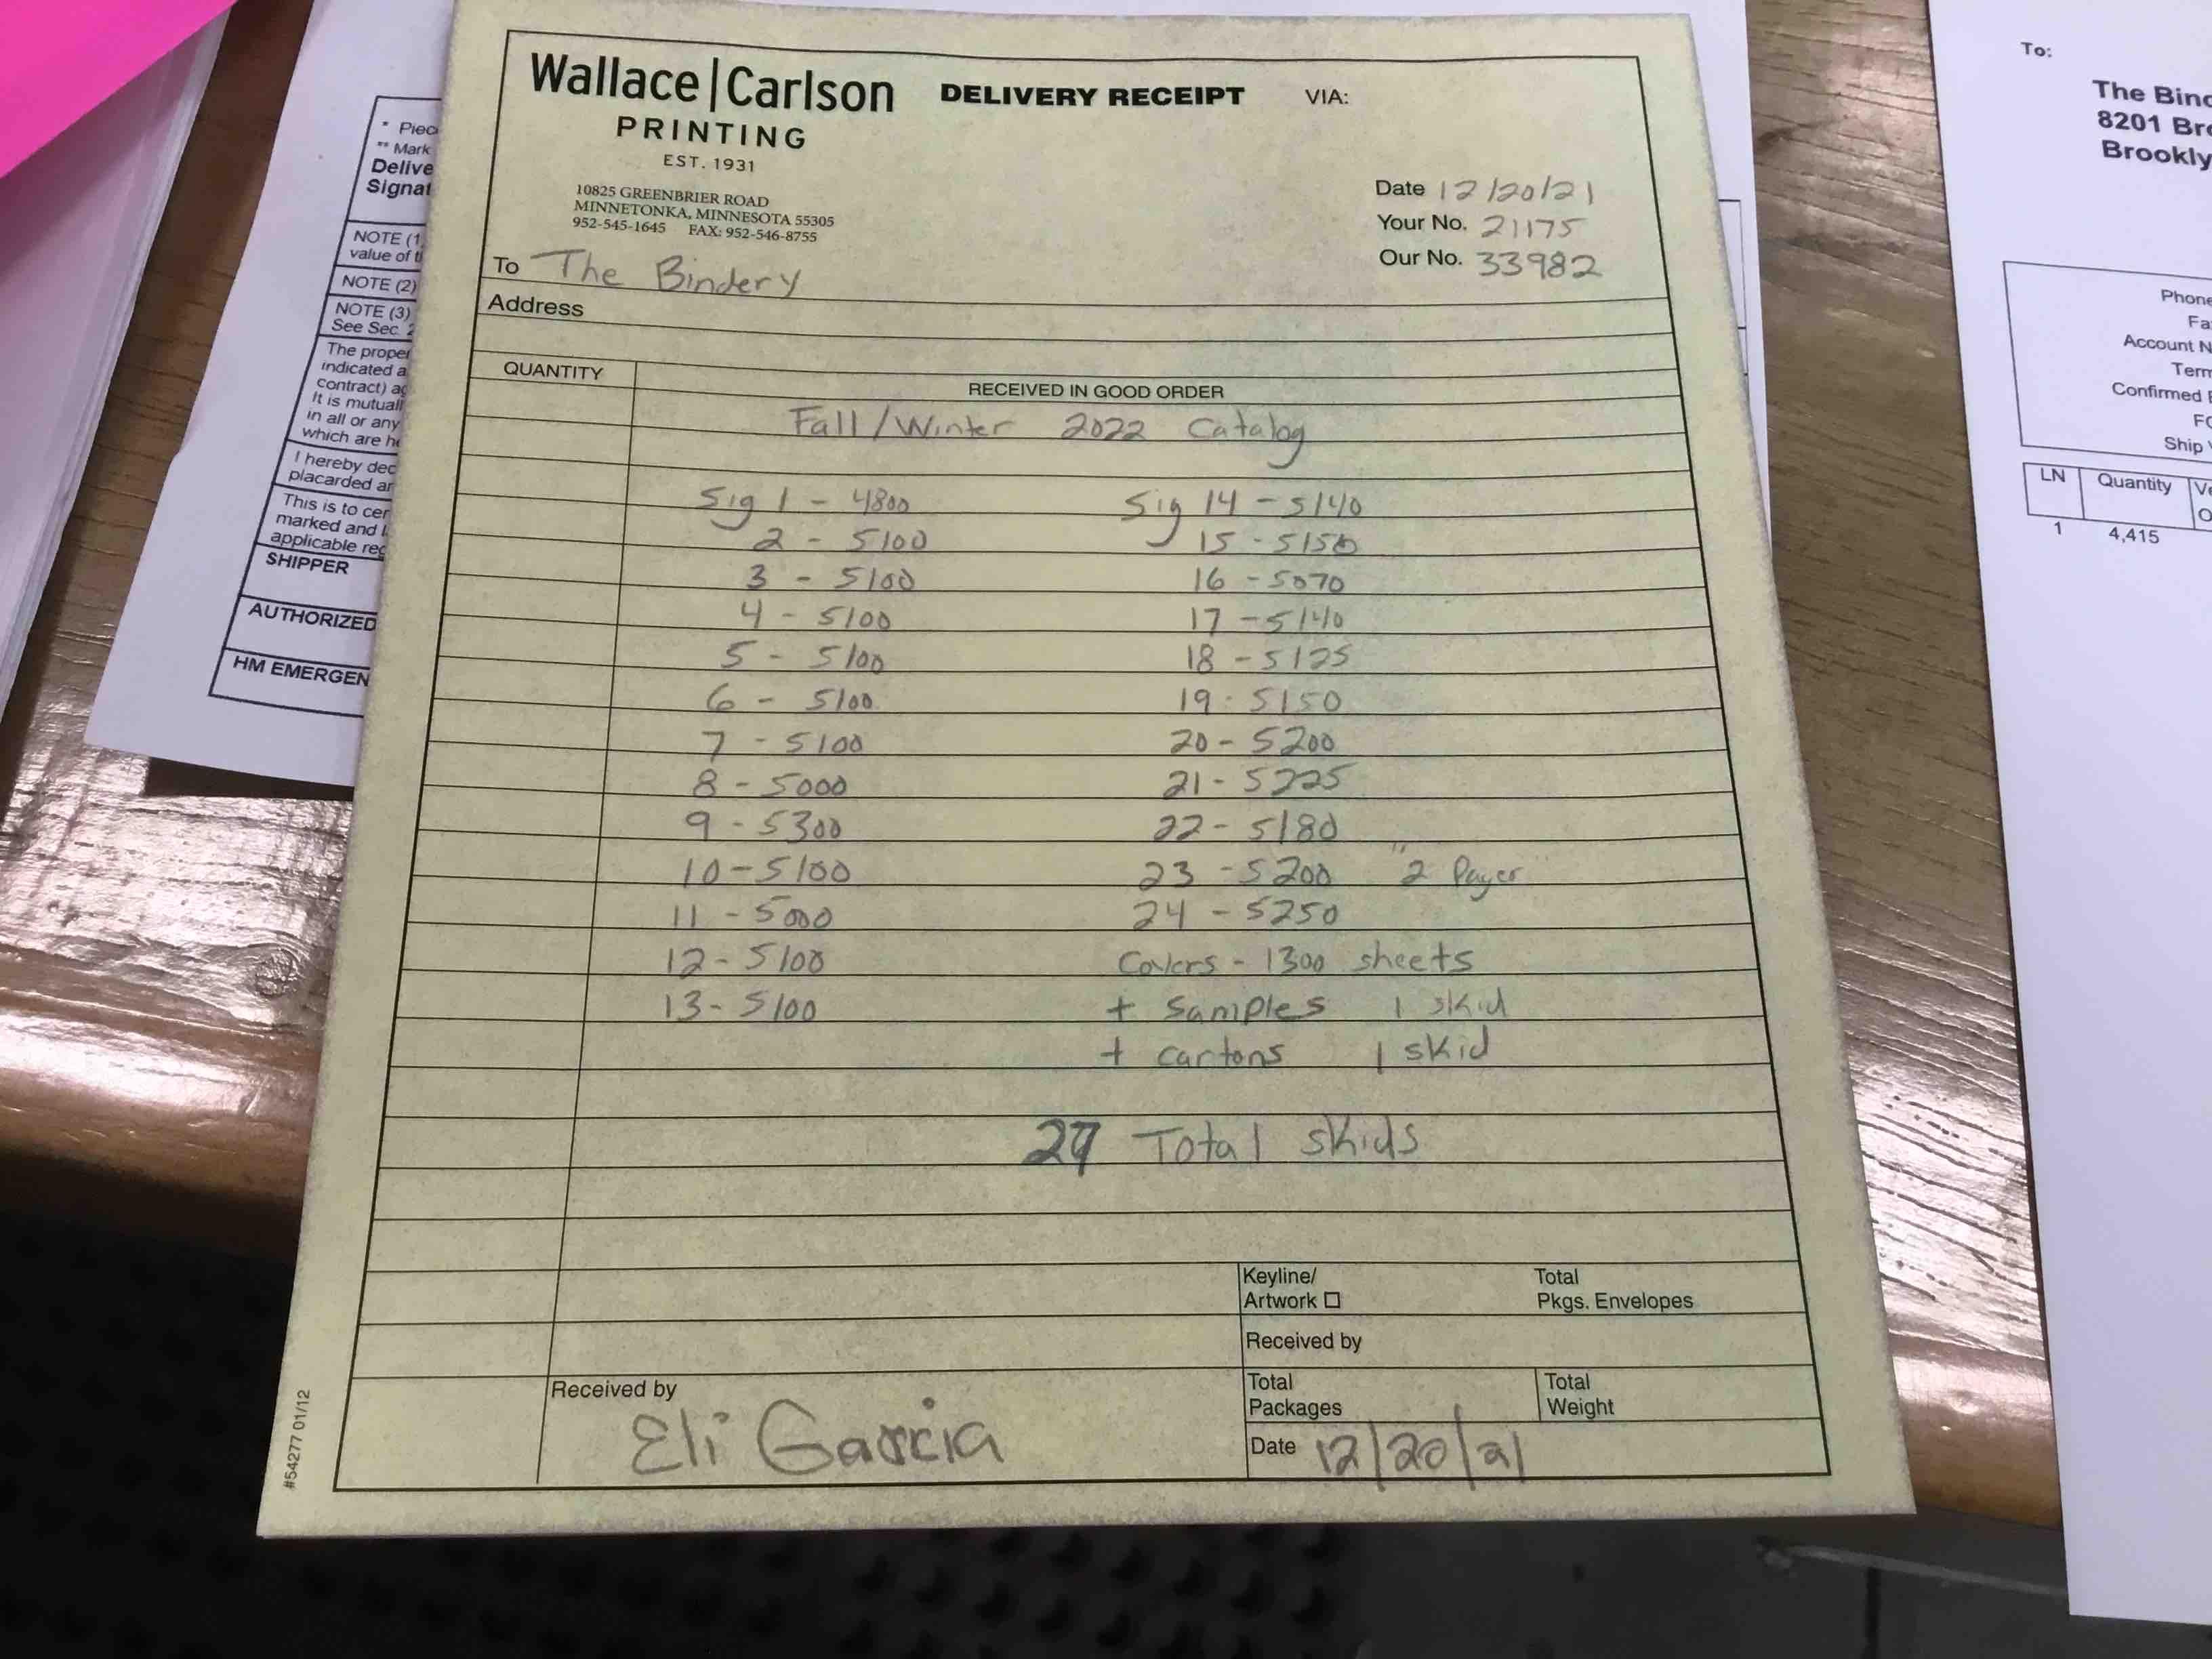 Wallace|Carlson
PRINTING
EST. 1931
10825 GREENBRIER ROAD
MINNETONKA, MINNESOTA 55305
952-545-1645 FAX: 952-546-8755
DELIVERY RECEIPT VIA:
Date 12/20/21
Your No. 21175
Our No. 33982
To The Bindery
Address
QUANTITY
RECEIVED IN GOOD ORDER
Fall/Winter 2022 Catalog
Sig 1 - 4800 Sig 14 - 5140
2 - 5100 15 - 5150
3 - 5100 16 - 5070
4 - 5100 17 - 5140
5 - 5100 18 - 5125
6 - 5100 19 - 5150
7 - 5100 20 - 5200
8 - 5000 21 - 5225
9 - 5300 22 - 5180
10 - 5100 23 - 5200 "2 Pager
11 - 5000 24 - 5250
12 - 5100 Covers - 1300 sheets
13 - 5100 + Samples 1 skid
+ cartons 1 skid
27 Total skids
Keyline/
Artwork
Total
Pkgs. Envelopes
Received by
Total
Packages
Total
Weight
Received by
Eli Garcia
Date 12/20/21
#54277 01/12
* Piec
** Mark
Delive
Signat
NOTE (1
value of t
NOTE (2)
NOTE (3)
See Sec. 2
The proper
indicated a
contract) ag
It is mutuall
in all or any
which are he
I hereby dec
placarded ar
This is to cer
marked and l
applicable reg
SHIPPER
AUTHORIZED
HM EMERGEN
To:
The Bind
8201 Bro
Brookly
Phone
Fa
Account N
Term
Confirmed
FO
Ship
LN Quantity
1 4,415